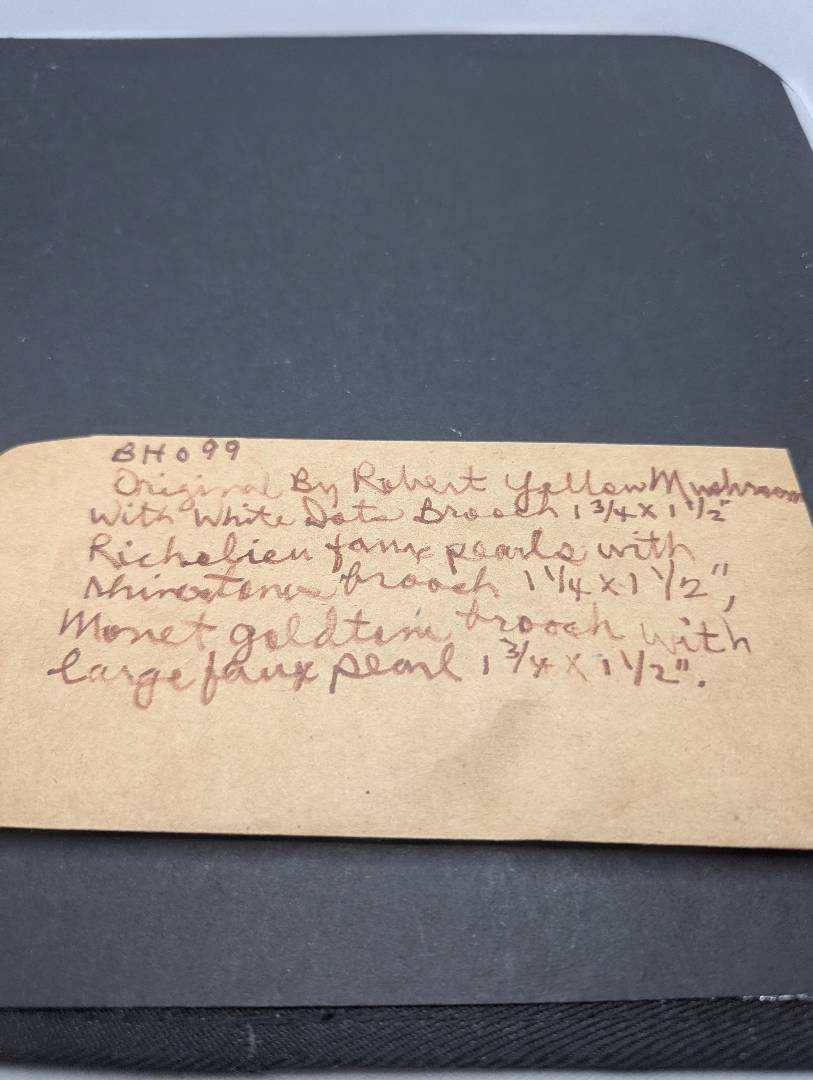 BH099
Original By Robert Yellow Mushroom
With White Dots Brooch 1 3/4 x 1 1/2"
Richelieu faux pearls with
rhinestones brooch 1 1/4 x 1 1/2",
Monet goldtone brooch with
large faux pearl 1 3/4 x 1 1/2".